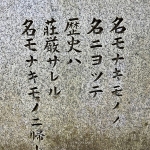 名モナキモノノ
名ニヨツテ
歴史ハ
荘厳サレル
名モナキモノニ帰